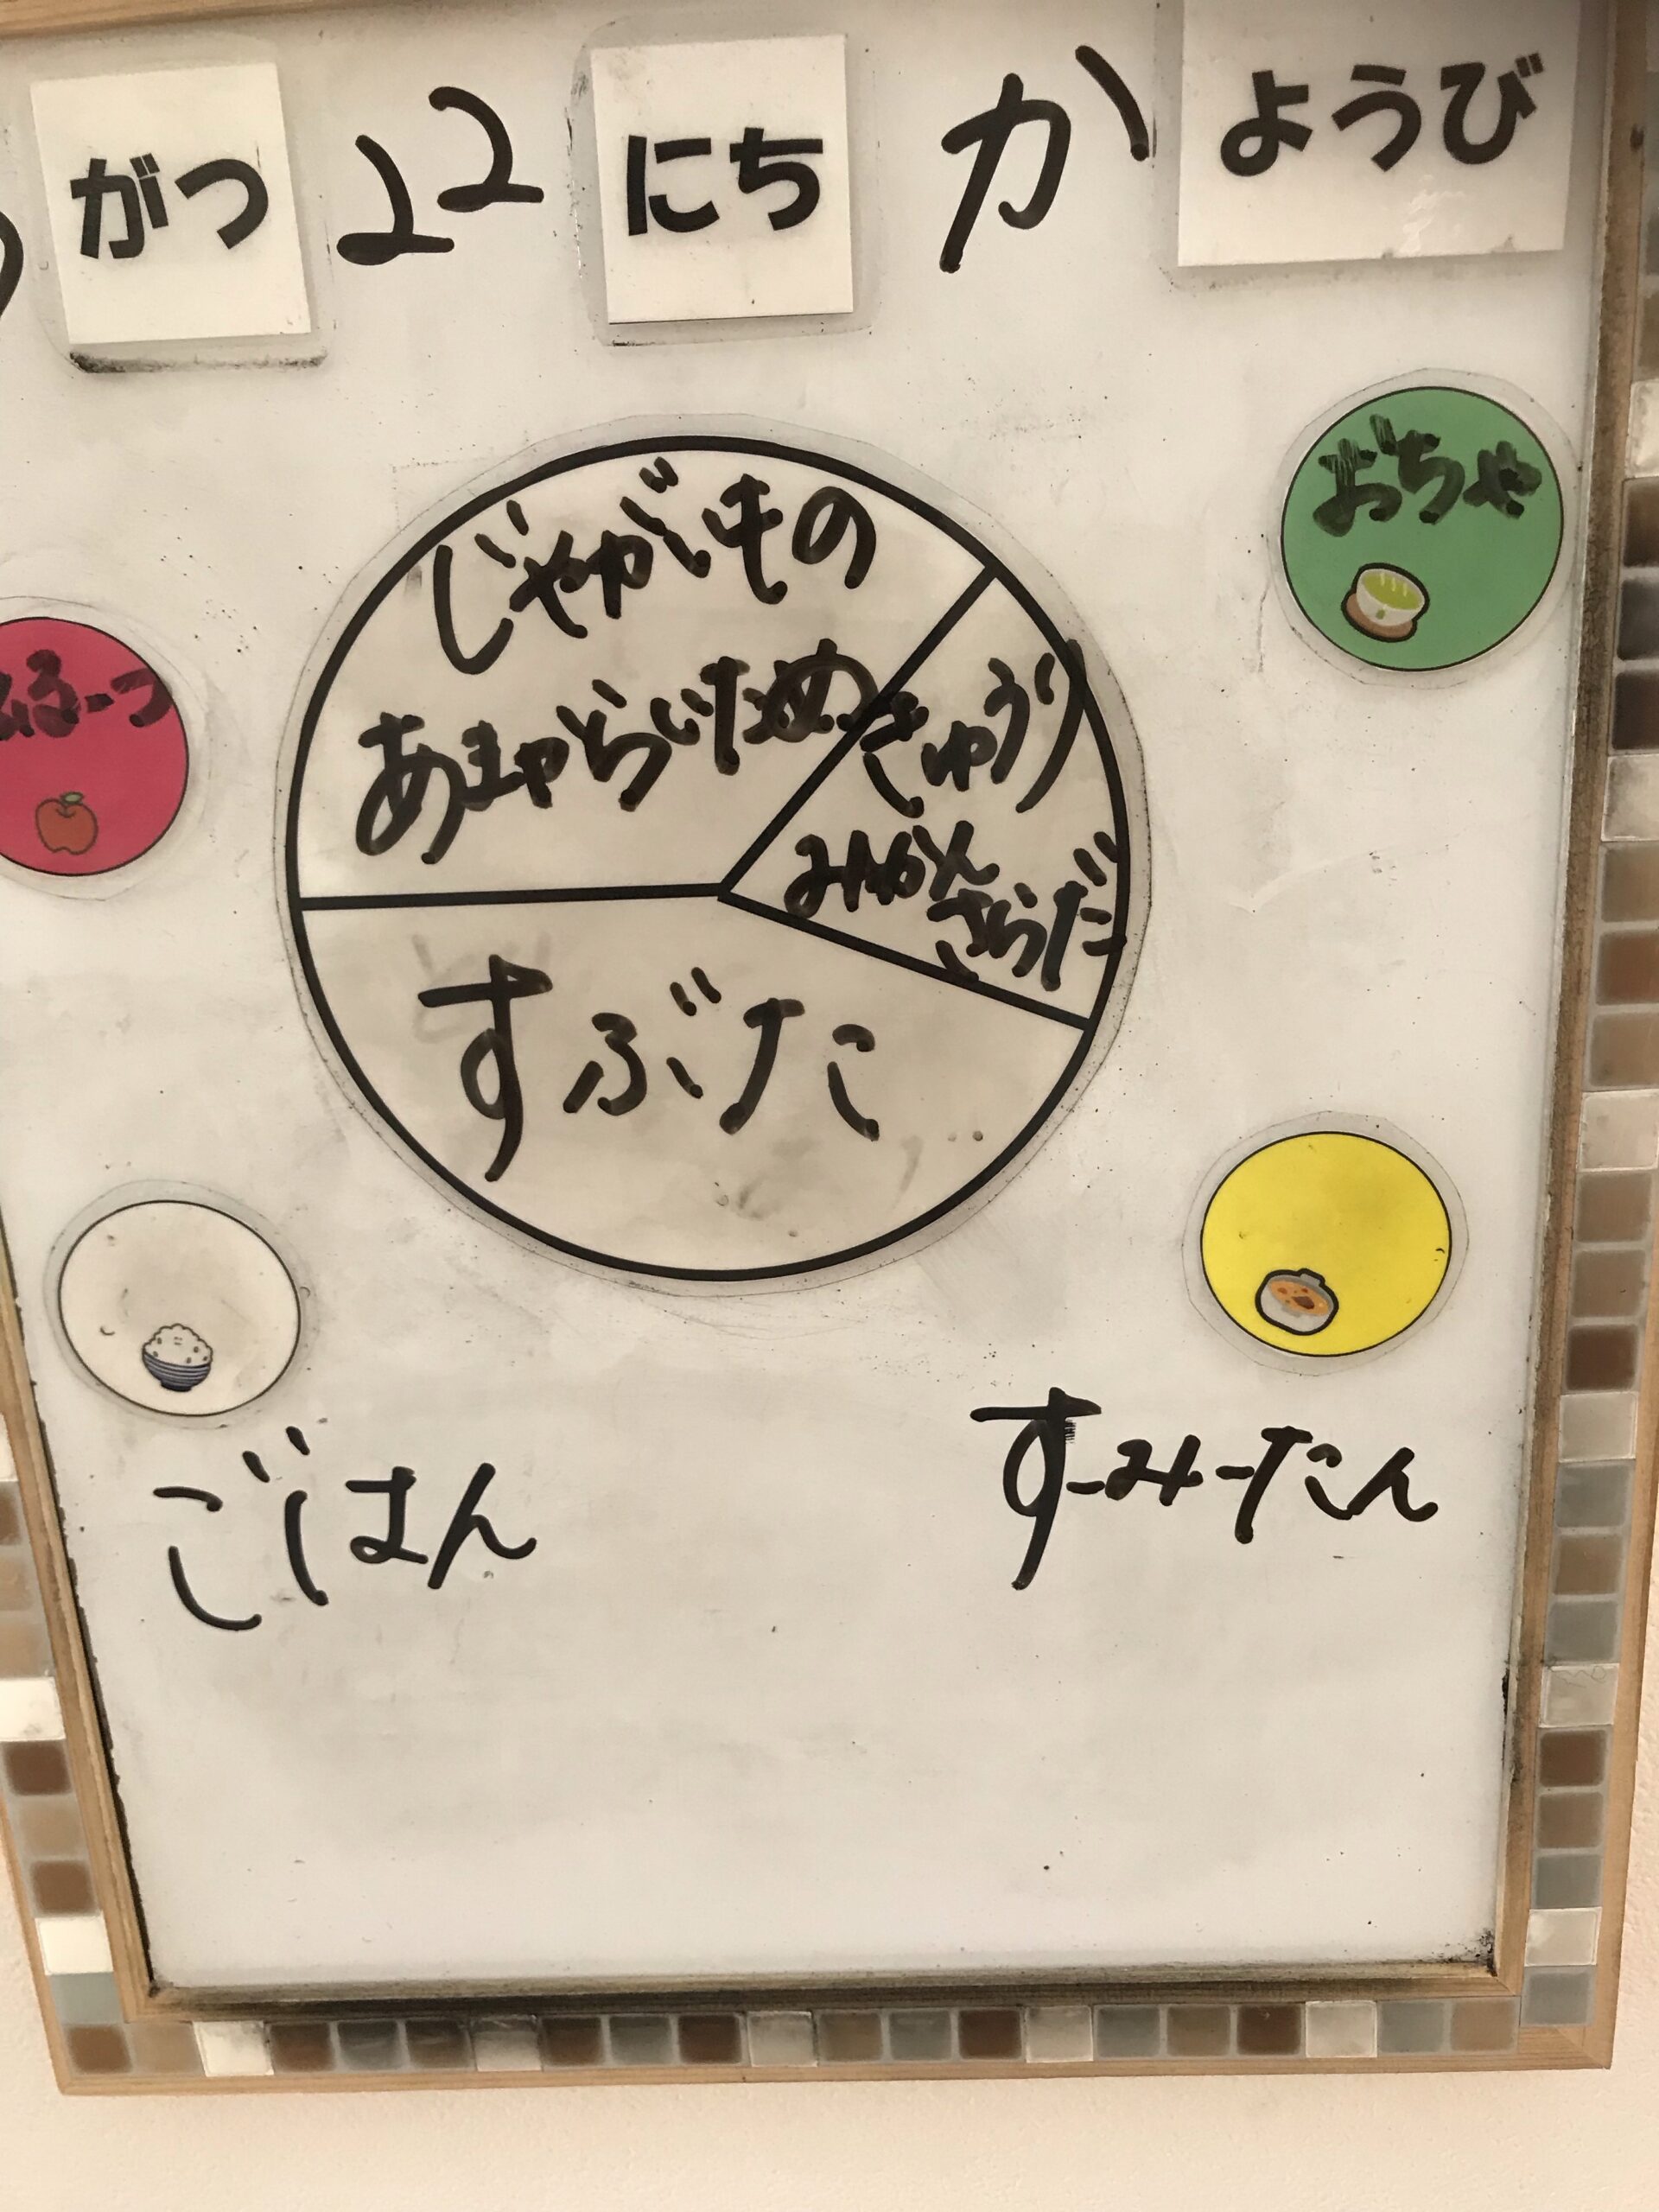 がつ 22 にち か ようび
おちゃ
じゃがいもの
あまからいため
きゅうり
みかん
さらだ
ふるーつ
すぶた
ごはん
すーみーたん